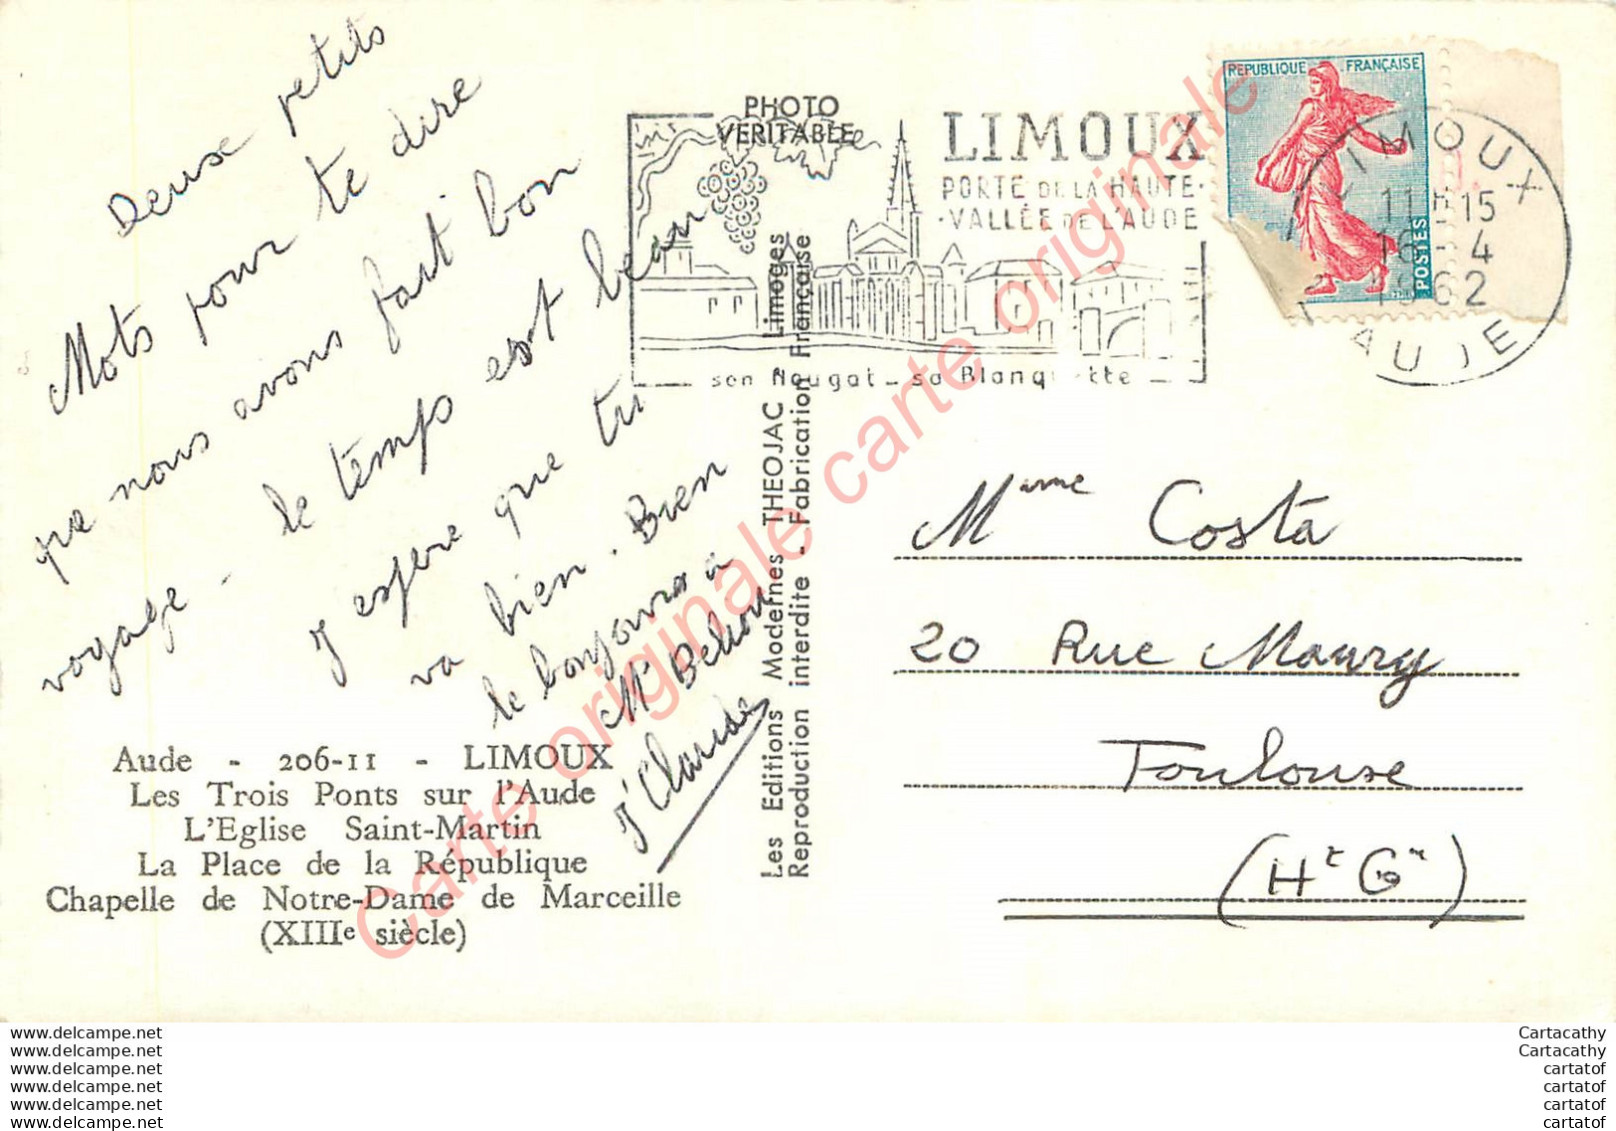 Deuse petits
Mots pour te dire
que nous avons fait bon
voyage - le temps est beau
J espère que tu
va bien. Bien
le bonjours à
Mr
J'Claude
Aude - 206-11 - LIMOUX
Les Trois Ponts sur l'Aude
L'Eglise Saint-Martin
La Place de la République
Chapelle de Notre-Dame de Marceille
(XIIIe siècle)
PHOTO
VERITABLE
Les Editions Modernes THEOJAC Limoges
Reproduction interdite - Fabrication Française
LIMOUX
PORTE DE LA HAUTE
VALLÉE DE L'AUDE
son Nougat - sa Blanquette
REPUBLIQUE FRANÇAISE
POSTES
LIMOUX
11H15
16-4
1962
AUDE
Mame Costa
20 Rue Maury
Toulouse
(Hte Gne)
Carte originale carte originale
Carte originale carte originale
www.delcampe.net
www.delcampe.net
www.delcampe.net
www.delcampe.net
www.delcampe.net
www.delcampe.net
Cartacathy
Cartacathy
cartatof
cartatof
cartatof
cartatof